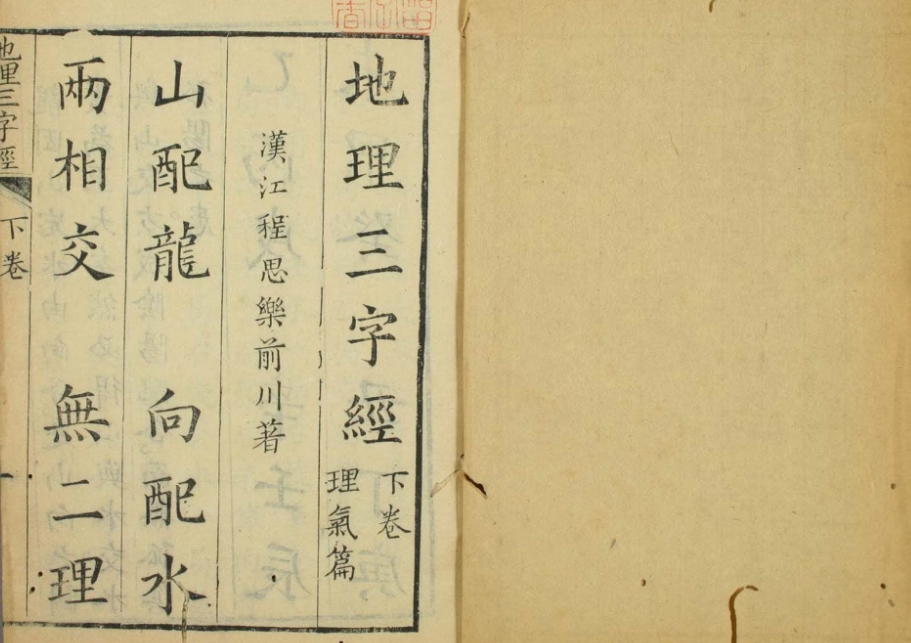 地理三字經 下卷
理氣篇
漢江程思樂前川著
山配龍 向配水
兩相交 無二理
地理三字經 下卷 一